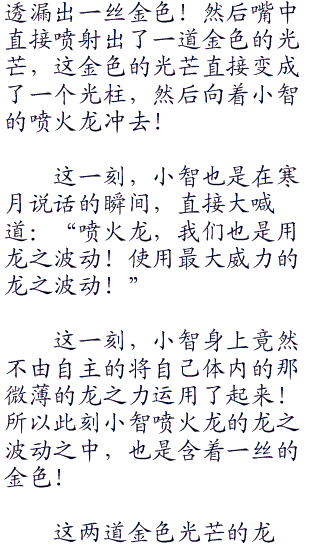 透漏出一丝金色！然后嘴中
直接喷射出了一道金色的光
芒，这金色的光芒直接变成
了一个光柱，然后向着小智
的喷火龙冲去！
这一刻，小智也是在寒
月说话的瞬间，直接大喊
道：“喷火龙，我们也是用
龙之波动！使用最大威力的
龙之波动！”
这一刻，小智身上竟然
不由自主的将自己体内的那
微薄的龙之力运用了起来！
所以此刻小智喷火龙的龙之
波动之中，也是含着一丝的
金色！
这两道金色光芒的龙